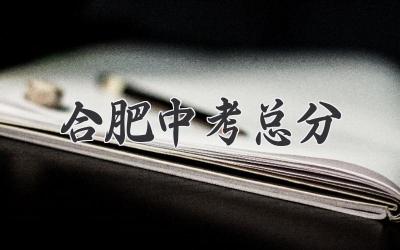 合肥中考总分